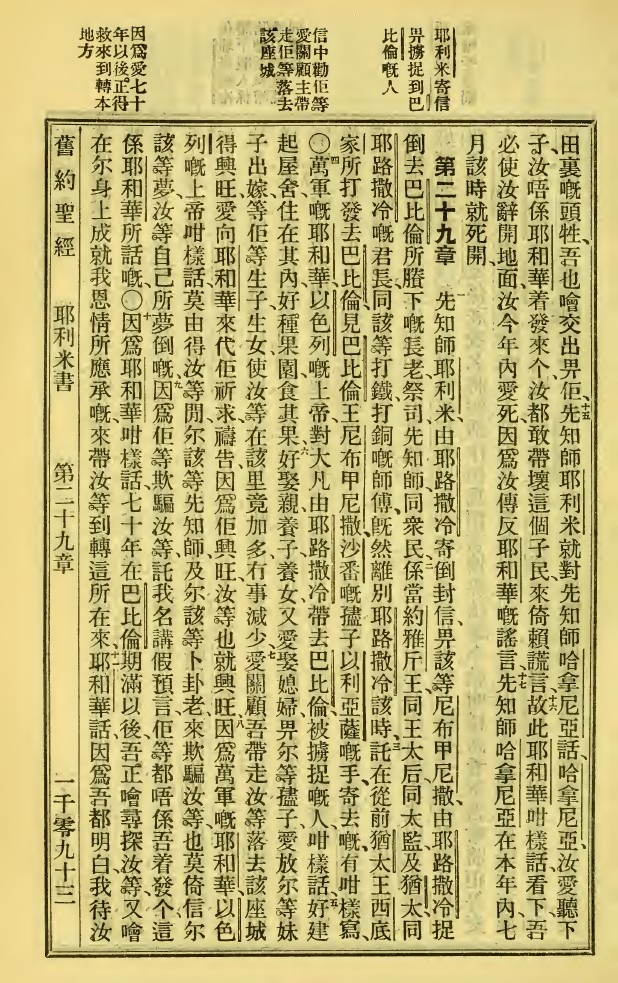 耶利米寄信
畀擄捉到巴
比倫嘅人
信中勸佢等
愛關顧主帶
走佢等落去
該座城
因為愛七十
年以後正得
救來到轉本
地方
田裏嘅頭牲、吾也噲交出畀佢、十五先知師耶利米就對先知師哈拿尼亞話、哈拿尼亞、汝愛聽下
子、汝唔係耶和華着發來个、汝都敢帶壞這個子民來倚賴謊言、十六故此耶和華咁樣話、看下吾
必使汝辭開地面、汝今年內愛死、因為汝傳反耶和華嘅謠言、十七先知師哈拿尼亞在本年內、七
月該時就死開、
第二十九章 一先知師耶利米、由耶路撒冷寄倒封信、畀該等尼布甲尼撒、由耶路撒冷捉
倒去巴比倫所賸下嘅長老祭司先知師、同衆民、二係當約雅斤王、同王太后、同太監、及猶太、同
耶路撒冷嘅君長、同該等打鐵打銅嘅師傅、既然離別耶路撒冷該時、三託在從前猶太王西底
家所打發去巴比倫、見巴比倫王尼布甲尼撒、沙番嘅孻子以利亞薩嘅手寄去嘅、有咁樣寫、
〇四萬軍嘅耶和華、以色列嘅上帝、對大凡由耶路撒冷帶去巴比倫被擄捉嘅人、咁樣話、五好建
起屋舍、住在其內、好種果園食其果、六好娶親、養子養女、又愛娶媳婦畀尔等孻子、愛放尔等妹
子出嫁、等佢等生子生女、使汝等在該里竟加多、冇事減少、七愛關顧吾帶走汝等落去該座城
得興旺、愛向耶和華來代佢祈求禱告、因為佢興旺、汝等也就興旺、八因為萬軍嘅耶和華、以色
列嘅上帝咁樣話、莫由得汝等閒尔該等先知師、及尔該等卜卦老、來欺騙汝等、也莫倚信尔
該等夢、汝等自己所夢倒嘅、九因為佢等欺騙汝等、託我名講假預言、佢等都唔係吾着發个、這
係耶和華所話嘅、〇十因為耶和華咁樣話、七十年在巴比倫期滿以後、吾正噲尋探汝等、又噲
在尔身上成就我恩情所應承嘅、來帶汝等到轉這所在來、十一耶和華話、因為吾都明白我待汝
舊約聖經 耶利米書 第二十九章 一千零九十三